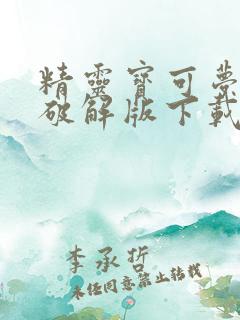 精靈寶可夢
破解版下載
李承哲
未经同意禁止转载